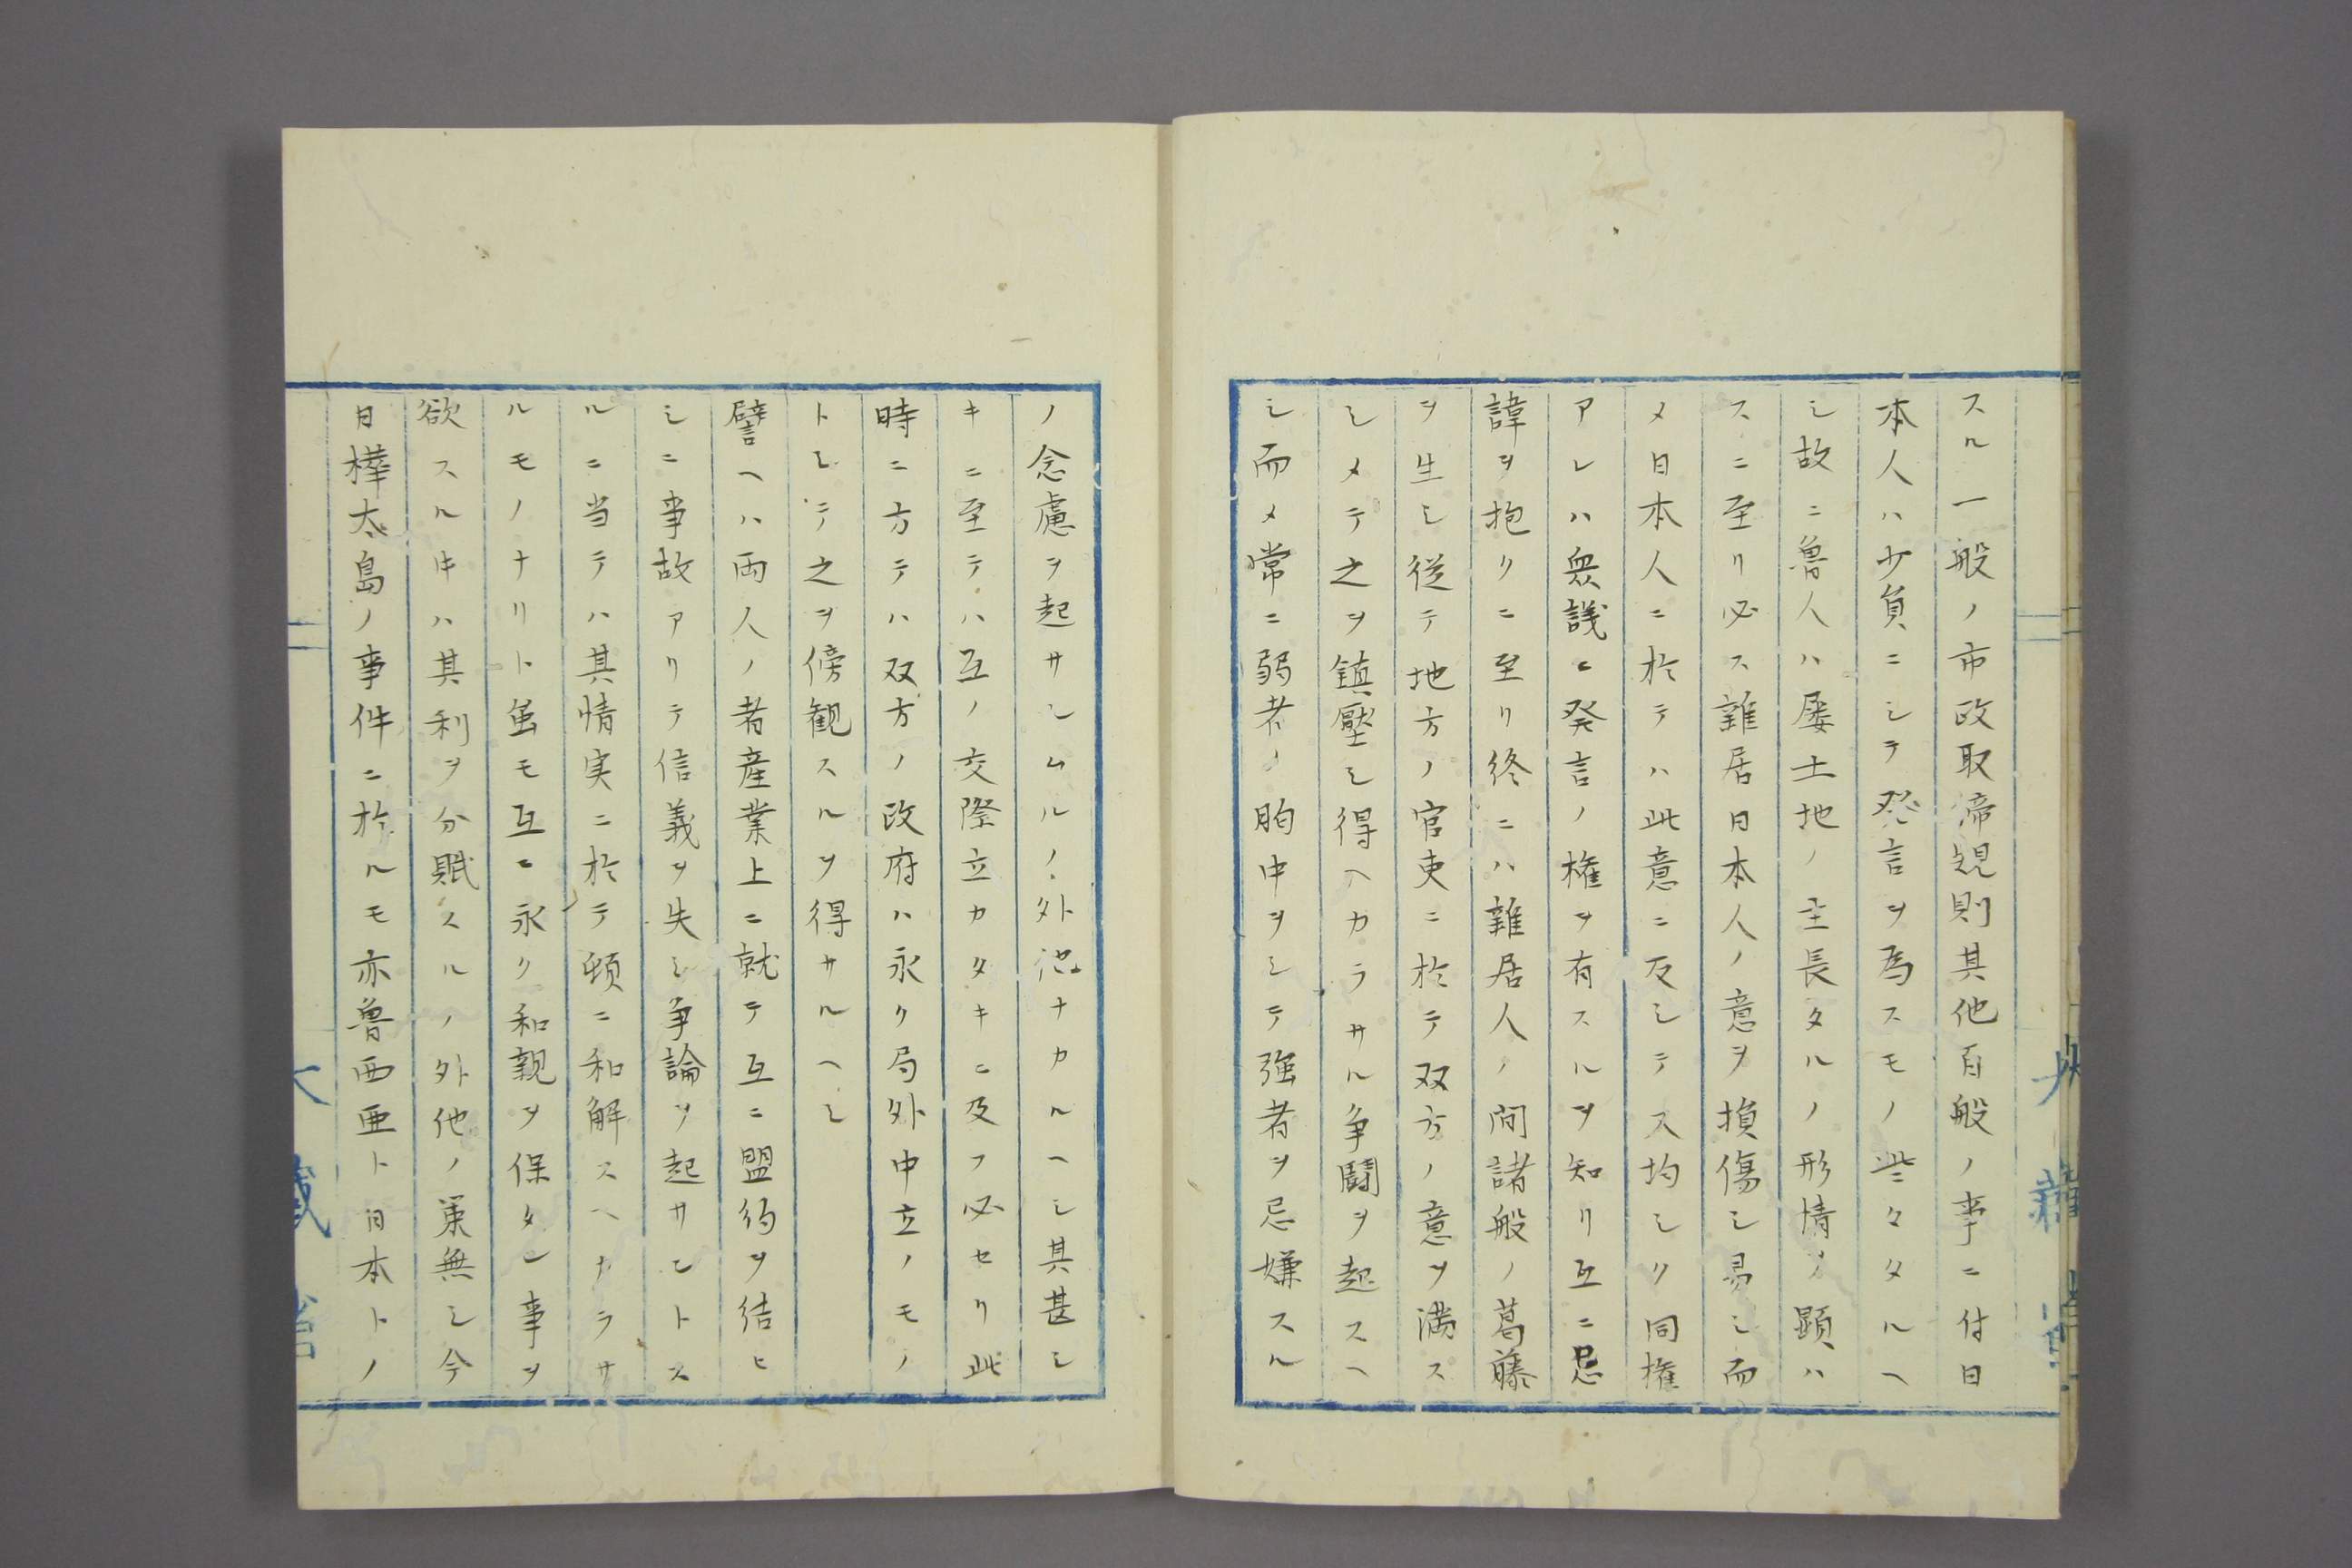 スル一般ノ市政取締規則其他百般ノ事ニ付日
本人ハ少負ニシテ発言ヲ為スモノ些々タルヘ
シ故ニ魯人ハ屡土地ノ主長タルノ形情ヲ顕ハ
スニ至リ必ス雑居日本人ノ意ヲ損傷シ易シ而
メ日本人ニ於テハ此意ニ反シテ均シク同権
アレハ衆議ニ発言ノ権ヲ有スルヲ知リ互ニ忌
諱ヲ抱クニ至リ終ニハ雑居人ノ間諸般ノ葛藤
ヲ生シ従テ地方ノ官吏ニ於テ双方ノ意ヲ満ス
シメテ之ヲ鎮壓シ得ヘカラサル争闘ヲ起スヘ
シ而メ常ニ弱者ノ胸中ヲシテ強者ヲ忌嫌スル
ノ念慮ヲ起サシムルノ外ナカルヘシ其甚シ
キニ至テハ互ノ交際立カタキニ及フ必セリ此
時ニ方テハ双方ノ政府ハ永ク局外中立ノモノ
トシテ之ヲ傍観スルヲ得サルヘシ
譬ヘハ両人ノ者産業上ニ就テ互ニ盟約ヲ結ヒ
シニ事故アリテ信義ヲ失シ争論ヲ起サントス
ルニ当テハ其情実ニ於テ頓ニ和解スヘカラサ
ルモノナリト虽モ互ニ永ク和親ヲ保タン事ヲ
欲スルキハ其利ヲ分賦スルノ外他ノ策無シ今
日樺太島ノ事件ニ於ルモ亦魯西亜ト日本トノ